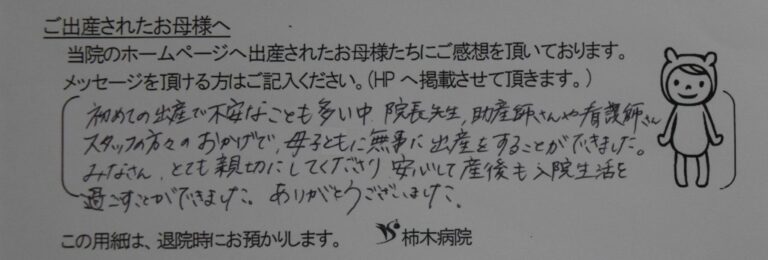 ご出産されたお母様へ
当院のホームページへ出産されたお母様たちにご感想を頂いております。
メッセージを頂ける方はご記入ください。(HPへ掲載させて頂きます。)
初めての出産で不安なことも多い中、院長先生、助産師さんや看護師さん
スタッフの方々のおかげで、母子ともに無事に出産をすることができました。
みなさん、とても親切にしてくださり、安心して産後も入院生活を
過ごすことができました。ありがとうございました。
この用紙は、退院時にお預かりします。 柿木病院